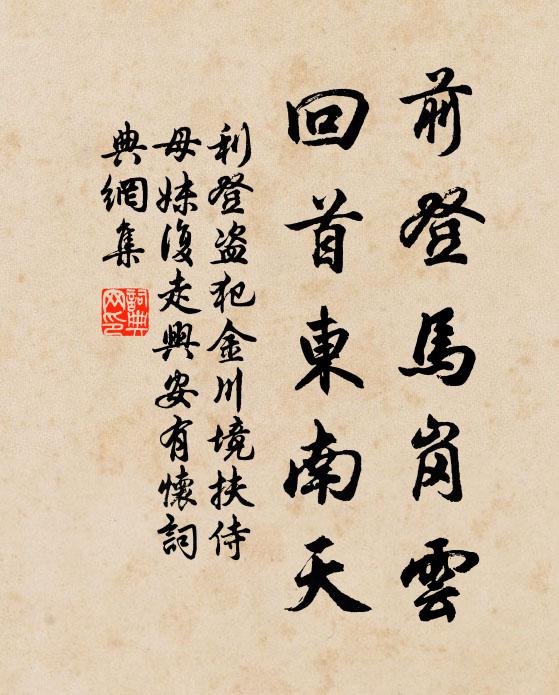 前登馬岗雲
回首東南天
利登盗犯金川境扶侍
母妹復走興安有懷詞
典網集
詞典
网印